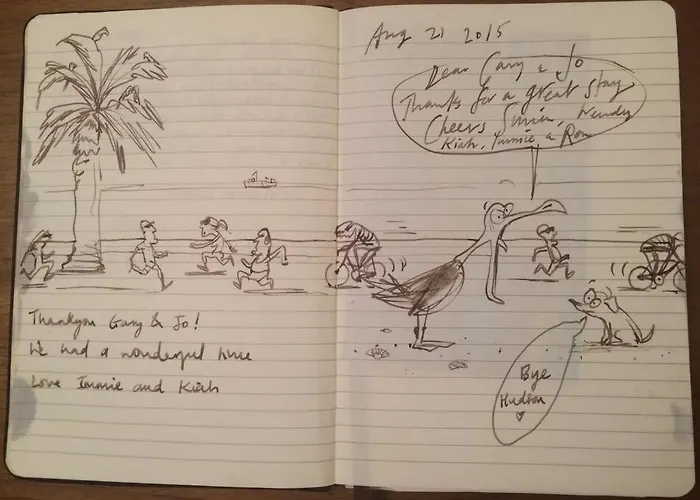 Thankyou Gary & Jo!
We had a wonderful time
Love Immie and Kiah
Aug 21 2015
Dear Gary & Jo
Thanks for a great stay
Cheers Simon, Wendy
Kiah, Immie & Ron
Bye
Hudson
♥